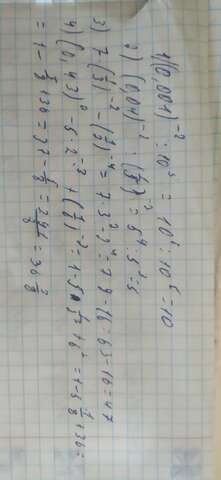 1) (0,001)⁻² : 10⁵ = 10⁶ : 10⁵ = 10
2) (0,04)⁻² : = 5⁴ : 5³ = 5
3) 7 · (1/3)⁻² - (1/2)⁻⁴ = 7 · 3² - 2⁴ = 7 · 9 - 16 = 63 - 16 = 47
4) (0,43)⁰ - 5 · 2⁻³ + (1/6)⁻² = 1 - 5 · 1/8 + 6² = 1 - 5/8 + 36 =
= 1 - 5/8 + 36 = 37 - 5/8 = 291/8 = 36 3/8